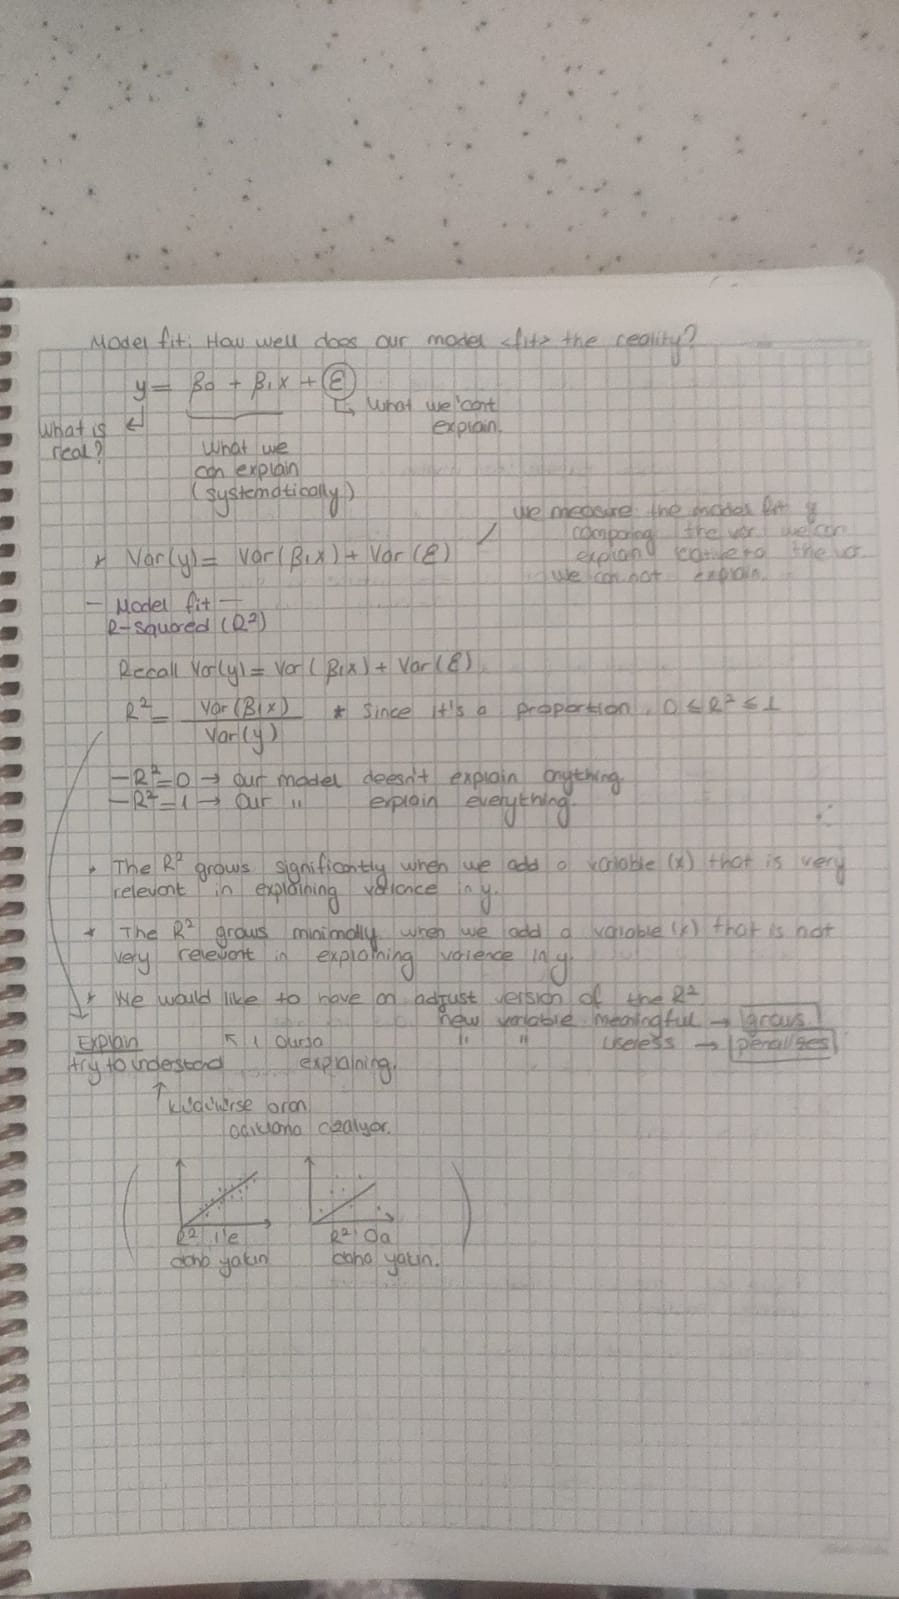 Model fit: How well does our model <fit> the reality?
y = β0 + β1x + ε
↳ What we can't
explain.
What is
real?
What we
can explain
(systematically)
we measure the models fit
comparing the var we can
explain to the
we can not explain.
* Var(y) = Var(β1x) + Var(ε)
- Model fit -
R-squared (R²)
Recall Var(y) = Var(β1x) + Var(ε)
R² = Var(β1x) / Var(y) * Since it's a proportion, 0 ≤ R² ≤ 1
- R² = 0 → our model doesn't explain anything
- R² = 1 → our " explain everything.
• The R² grows significantly when we add a variable (x) that is very
relevant in explaining variance in y.
* The R² grows minimally when we add a variable (x) that is not
very relevant in explaining varience in y.
* We would like to have an adjust version of the R²
new variable meaningful → grows
" " useless → penalises
Explain ↖ 1 olursa
try to understood explaining.
↑ küçülürse oran
açıklama azalıyor.
R² 1'e
daha yakın
R² 0a
daha yakın.